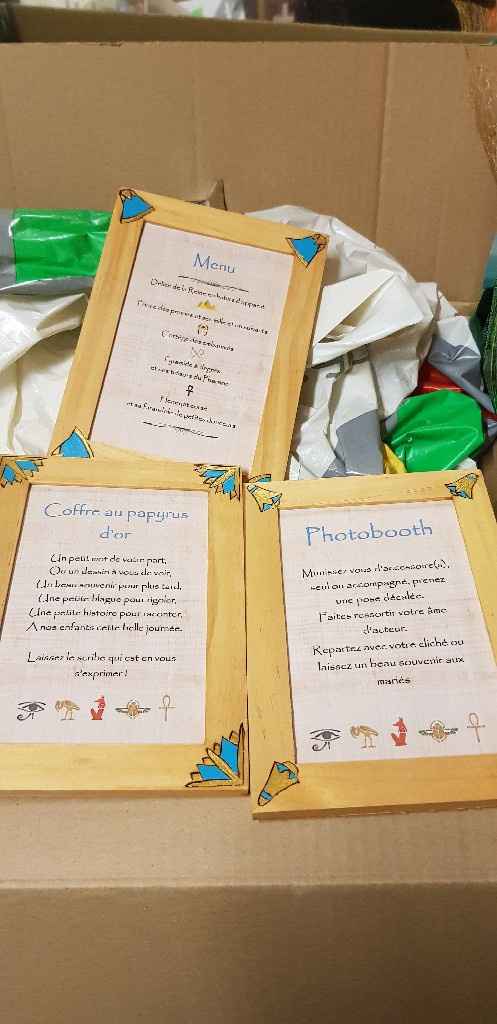 Menu
Délice de la Reine en habits d'apparat
et son
Cortège des embaumés
Pyramide à degrés
et ses trésors du Pharaon
et sa farandole de petites douceurs
Coffre au papyrus
d'or
Un petit mot de votre part,
Ou un dessin à vous de voir,
Un beau souvenir pour plus tard,
Une petite blague pour rigoler,
Une petite histoire pour raconter,
A nos enfants cette belle journée.
Laissez le scribe qui est en vous
s'exprimer !
Photobooth
Munissez vous d'accessoire(s),
seul ou accompagné, prenez
une pose décalée.
Faites ressortir votre âme
d'acteur.
Repartez avec votre cliché ou
laissez un beau souvenir aux
mariés